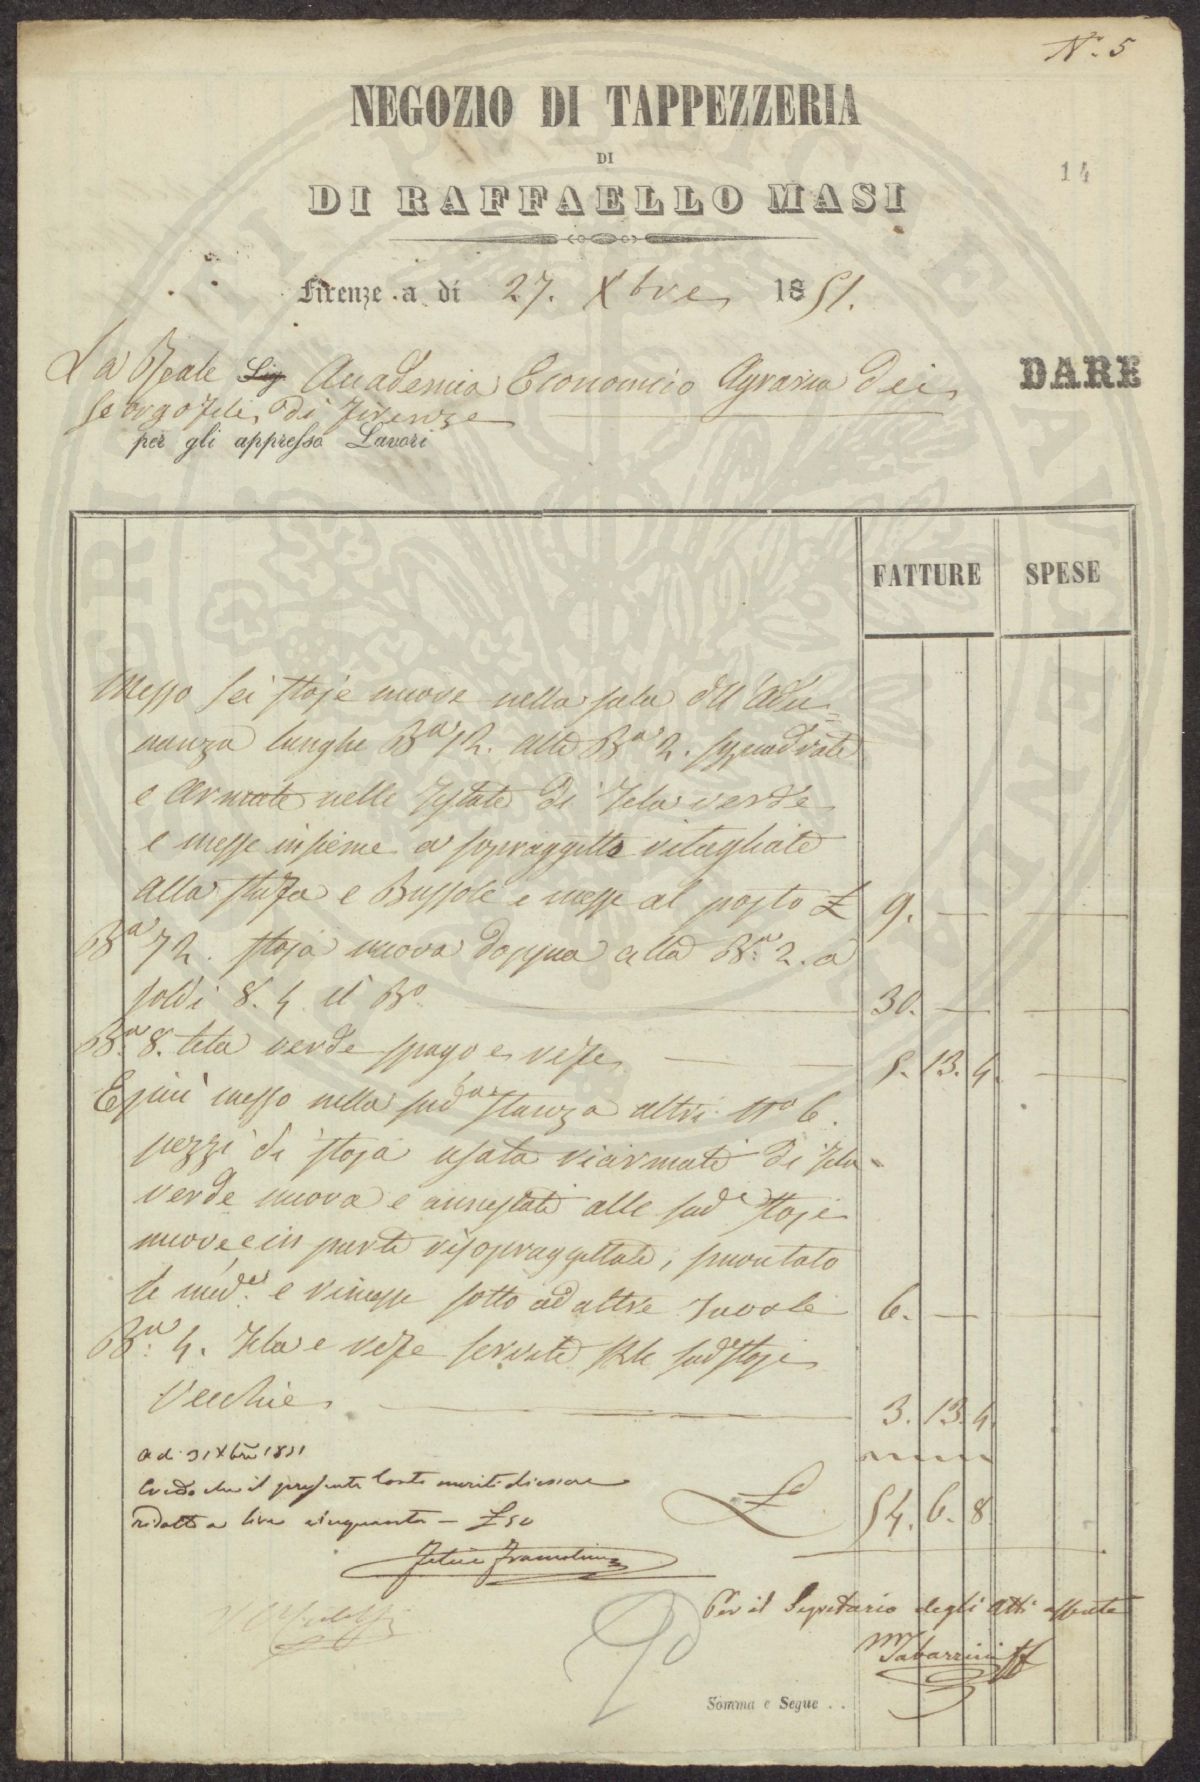 N.º 5
NEGOZIO DI TAPPEZZERIA
DI
14
DI RAFFAELLO MASI
Firenze a dì 27. Xbre 1851.
La Reale Sig Accademia Economico Agraria dei
DARE
Georgofili di Firenze
per gli appresso Lavori
FATTURE SPESE
Messo sei stoje nuove nella sala dell'Adu=
nanza lunghe Bª 12. alte Bª 2. squadrate
e armate nelle Testate di Tela verde
e messe insieme a sopraggitto ritagliate
alla stufa e Bussole e messe al posto £ 9. — —
Bª 72. stoja nuova doppia alta Bª 2. a
soldi 8. 4 il Bº 30. — —
Bª 8. tela verde spago e refe 5. 13. 4. —
E più messo nella sudª stanza altri nº 6.
pezzi di stoja usata riarmati di tela
verde nuova e annestati alle sudᵉ stoje
nuove e in parte risopraggittate, smontato
le medᵉ e rimesse sotto ad altre Tavole 6. — —
Bª 4. Tela e refe servite alle sudᵉ stoje
Vecchie 3. 13. 4.
a dì 31 Xbre 1851
Credo che il presente Conto meriti di essere
£ 54. 6. 8.
ridotto a lire cinquanta — £ 50
Felice Francolini
Per il Segretario degli Atti assente
M Tabarrini
Somma e Segue . .